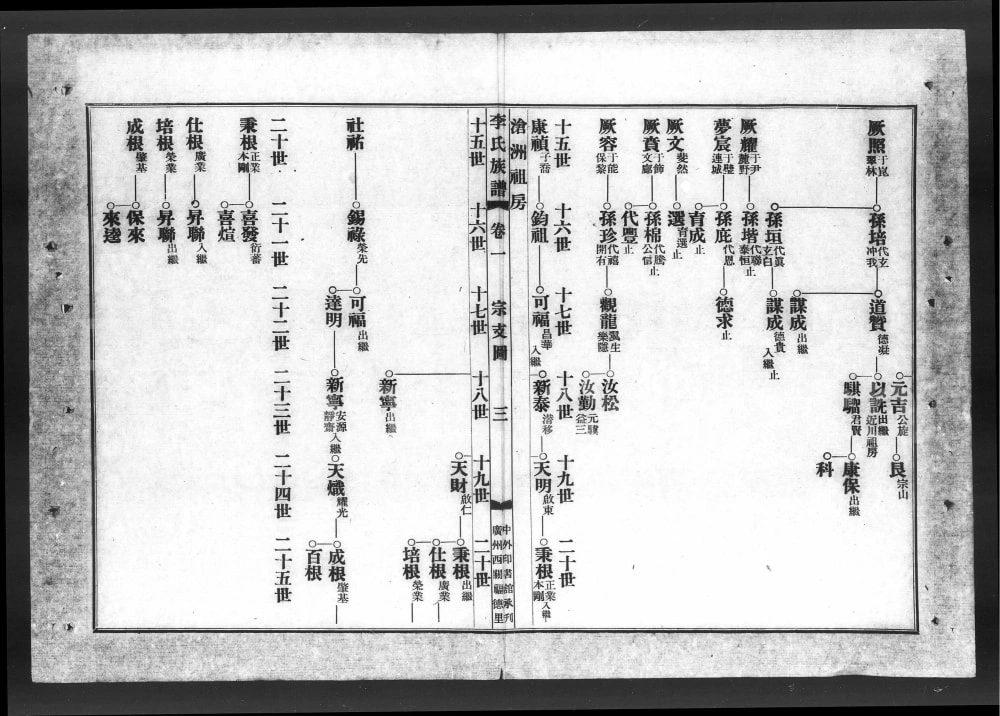 厥照 于崑 翠林
孫培 代玄 冲我
道贊 德凝
元吉 公旋
艮 宗山
以詵 出繼 近川祖房
騏驑 君賢
康保 出繼
科
謀成 出繼
孫垣 代真 玄白
謀成 德貴 入繼 止
厥耀 于尹 麓野
孫堦 代聯 泰恒 止
夢宸 于璧 連城
孫庇 代恩
德求 止
育成 止
厥文 斐然
選 育選 止
厥賁 于飾 文廊
孫棉 代勝 公信 止
代豐 止
厥容 于能 保黎
孫珍 代禧 開有
觀龍 鳳生 樂隱
汝松
汝勤 元驥 益三
十五世 十六世 十七世 十八世 十九世 二十世
康禎 子喬
鈞祖
可福 昌華 入繼
新泰 潜移
天明 啟東
秉根 正業 本剛 入繼
滄洲祖房
李氏族譜 卷一 宗支圖 三
中外印書館承刋
廣州西關福德里
十五世 十六世 十七世 十八世 十九世 二十世
天財 啟仁
秉根 出繼
仕根 廣業
培根 榮業
新寧 出繼
社祐
錫祿 榮先
可福 出繼
達明
新寧 安源 靜齋 入繼
天熾 耀光
成根 肇基
百根
二十世 二十一世 二十二世 二十三世 二十四世 二十五世
秉根 正業 本剛
喜發 衍蕃
喜煊
仕根 廣業
昇聯 入繼
培根 榮業
昇聯 出繼
成根 肇基
保來
來逵